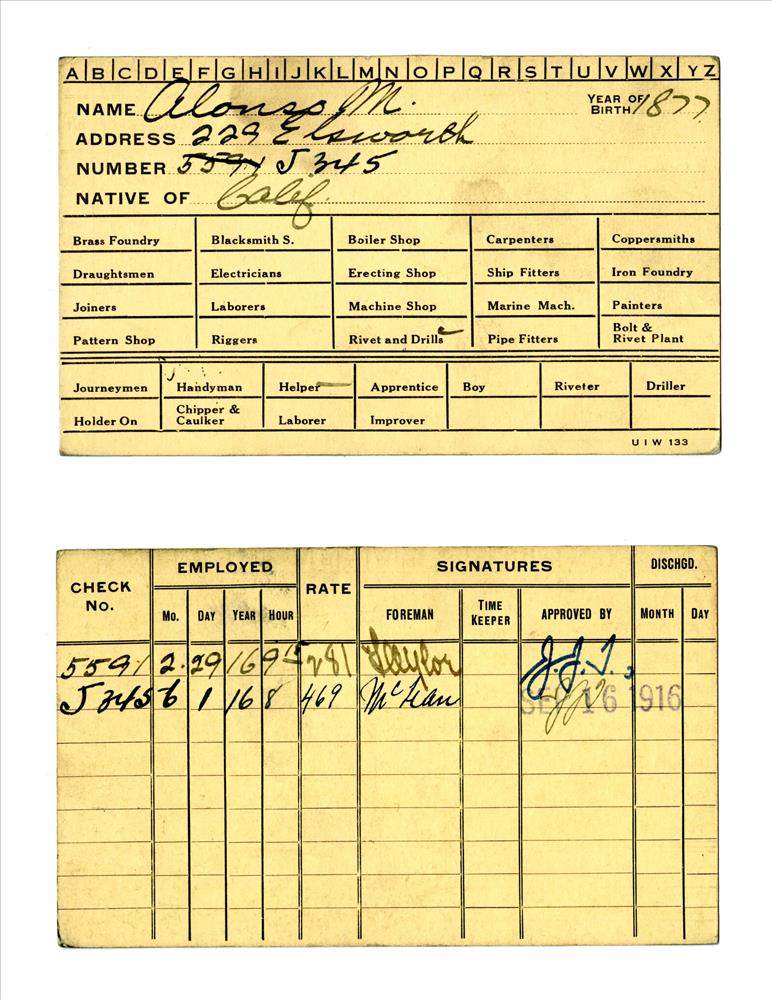 A B C D E F G H I J K L M N O P Q R S T U V W X Y Z
NAME Alonso M. YEAR OF BIRTH 1877
ADDRESS 229 Elsworth
NUMBER 5591 J 345
NATIVE OF Calif.
Brass Foundry Blacksmith S. Boiler Shop Carpenters Coppersmiths
Draughtsmen Electricians Erecting Shop Ship Fitters Iron Foundry
Joiners Laborers Machine Shop Marine Mach. Painters
Pattern Shop Riggers Rivet and Drills Pipe Fitters Bolt & Rivet Plant
Journeymen Handyman Helper Apprentice Boy Riveter Driller
Holder On Chipper & Caulker Laborer Improver
U I W 133
CHECK No. EMPLOYED RATE SIGNATURES DISCHGD.
Mo. DAY YEAR HOUR FOREMAN TIME KEEPER APPROVED BY MONTH DAY
5591 2 29 16 9 15 281 Taylor J.J.T.
J 345 6 1 16 8 469 McLean SEP 16 1916